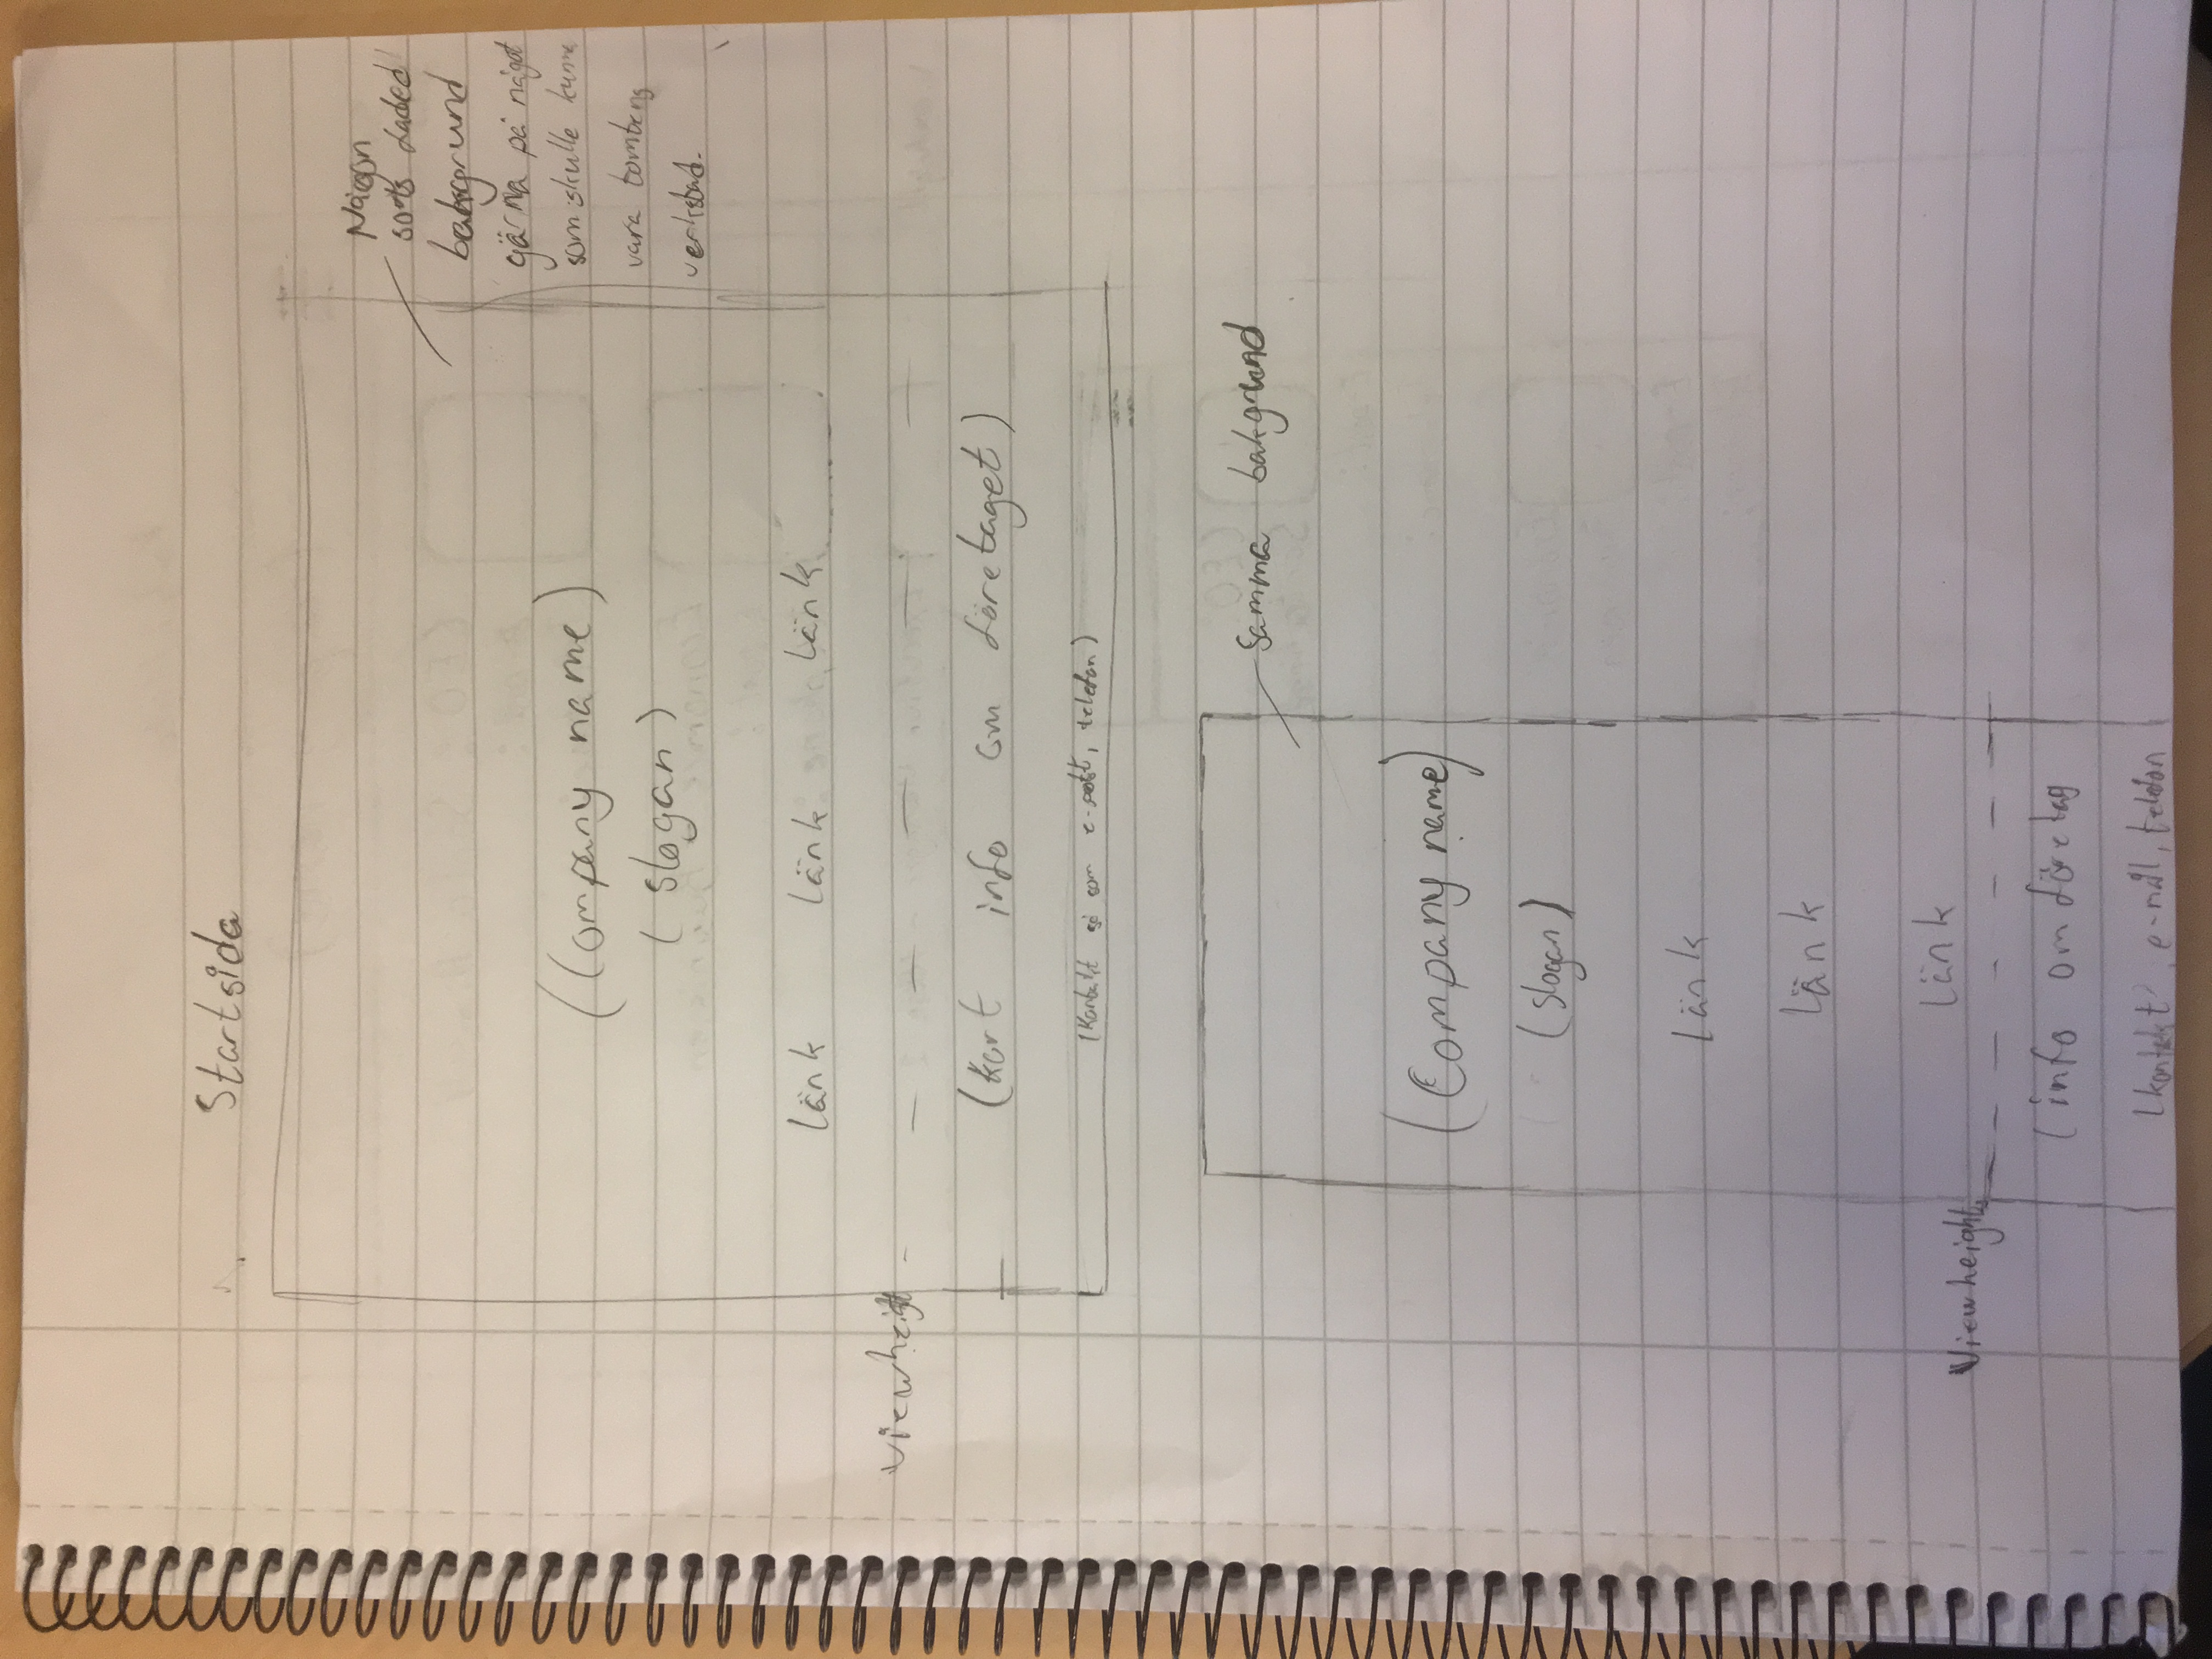 Startsida
Någon
sorts faded
bakgrund
gärna på något
som skulle kunna
vara tomtens
verkstad.
(Company name)
(slogan)
länk länk länk
viewheight
(kort info om företaget)
(Kontakt så som e-post, telefon)
Samma bakgrund
(Company name)
(slogan)
länk
länk
länk
Viewheight
(info om företag
(kontakt, e-mail, telefon